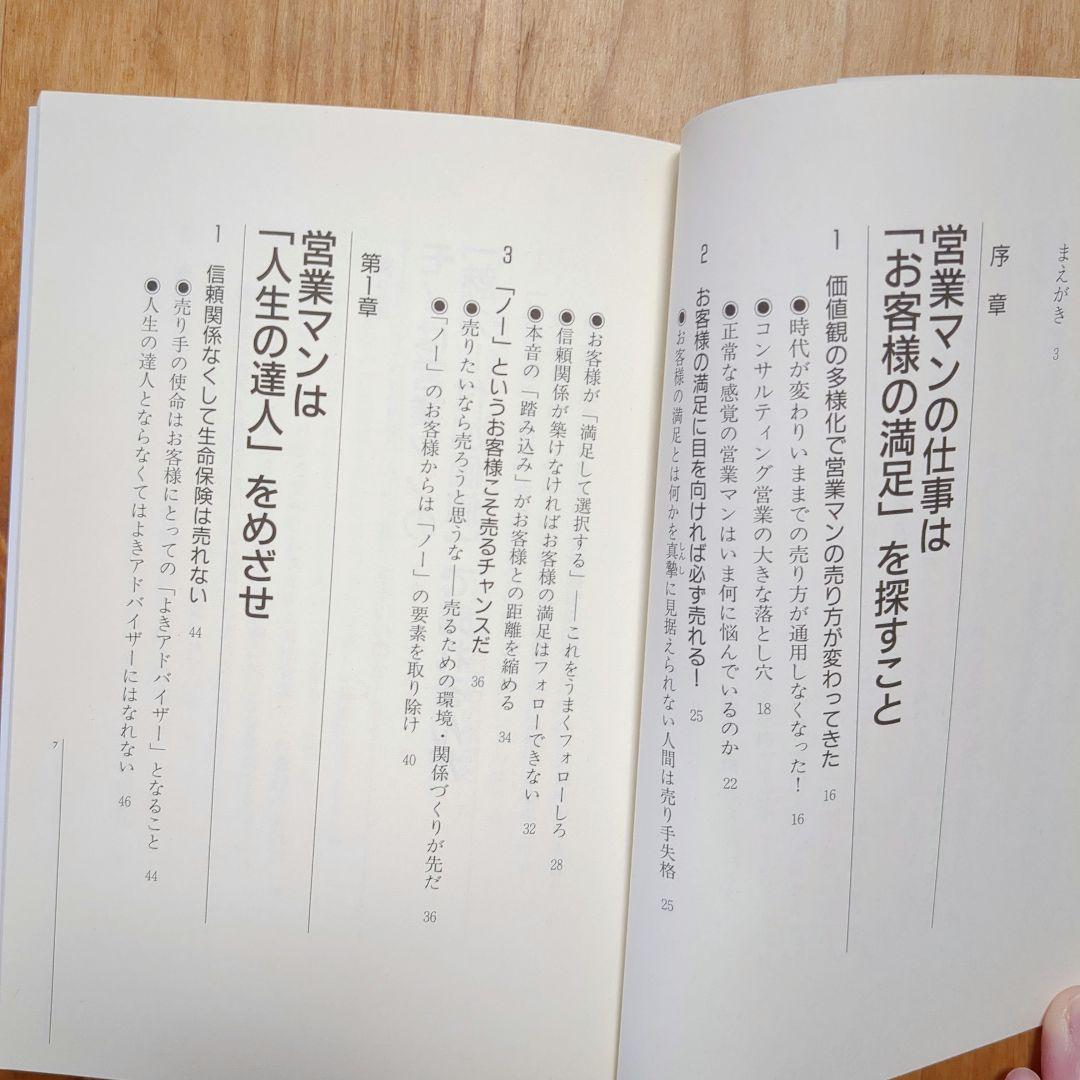 まえがき 3
序章
営業マンの仕事は
「お客様の満足」を探すこと
1 価値観の多様化で営業マンの売り方が変わってきた 16
●時代が変わりいままでの売り方が通用しなくなった！ 16
●コンサルティング営業の大きな落とし穴 18
●正常な感覚の営業マンはいま何に悩んでいるのか 22
2 お客様の満足に目を向ければ必ず売れる！ 25
●お客様の満足とは何かを真摯に見据えられない人間は売り手失格 25
しんし
●お客様が「満足して選択する」——これをうまくフォローしろ 28
●信頼関係が築けなければお客様の満足はフォローできない 32
●本音の「踏み込み」がお客様との距離を縮める 34
3 「ノー」というお客様こそ売るチャンスだ 36
●売りたいなら売ろうと思うな——売るための環境・関係づくりが先だ 36
●「ノー」のお客様からは「ノー」の要素を取り除け 40
第1章
営業マンは
「人生の達人」をめざせ
1 信頼関係なくして生命保険は売れない 44
●売り手の使命はお客様にとっての「よきアドバイザー」となること 44
●人生の達人とならなくてはよきアドバイザーにはなれない 46
7